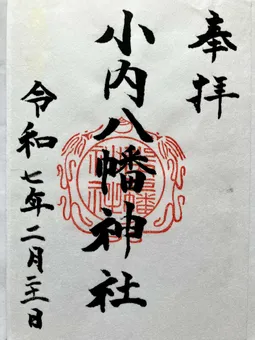 奉拝
小内八幡神社
令和七年二月二十一日